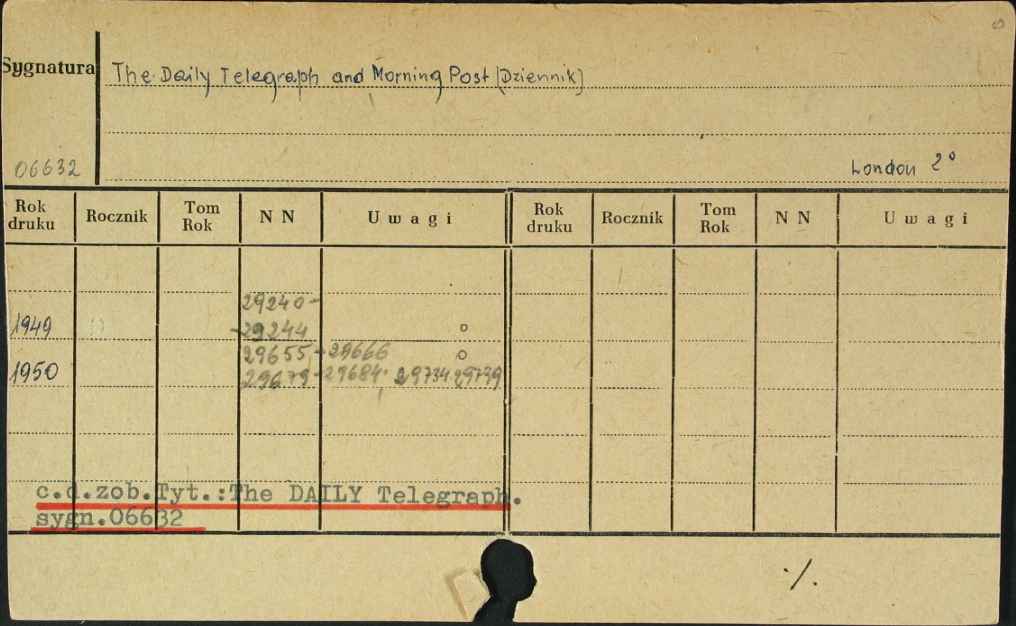 Sygnatura
The Daily Telegraph and Morning Post [Dziennik]
06632
London 2°
Rok druku Rocznik Tom Rok N N Uwagi Rok druku Rocznik Tom Rok N N Uwagi
29240-
1949 -29244 o
29655-29666 o
1950 29679-29684. 29734.29739
c.d.zob.Tyt.:The DAILY Telegraph.
sygn.06632
./.